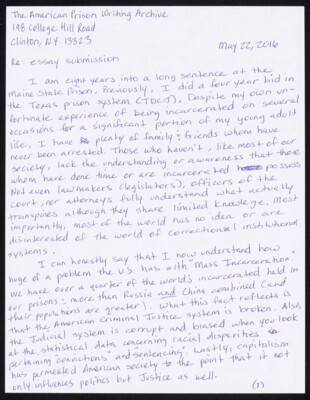 The American Prison Writing Archive
198 College Hill Road
Clinton, N.Y 13323
May 22, 2016
Re: essay submission
I am eight years into a long sentence at the
Maine State Prison. Previously, I did a four year bid in
the Texas prison system (TDCJ). Despite my own un-
fortunate experience of being incarcerated on several
occasions for a significant portion of my young adult
life, I have plenty of family & friends whom have
never been arrested. Those who haven't, like most of our
society, lack the understanding or awareness that those
whom have done time or are incarcerated possess.
Not even lawmakers (legislators), officers of the
court, nor attorneys fully understand what actually
transpires although they share limited knowledge. Most
importantly, most of the world has no idea or are
disinterested of the world of correctional institutional
systems.
I can honestly say that I now understand how
huge of a problem the U.S. has with "Mass Incarceration."
We have over a quarter of the world's incarcerated held in
our prisons; more than Russia and China combined (and
their populations are greater). What this fact reflects is
that the American Criminal Justice system is broken. Also,
the Judicial system is corrupt and biased when you look
at the statistical data concerning racial disparities
pertaining "convictions" and "sentencing". Lastly, capitalism
has permeated American society to the point that it not
only influences politics but Justice as well.
(1)